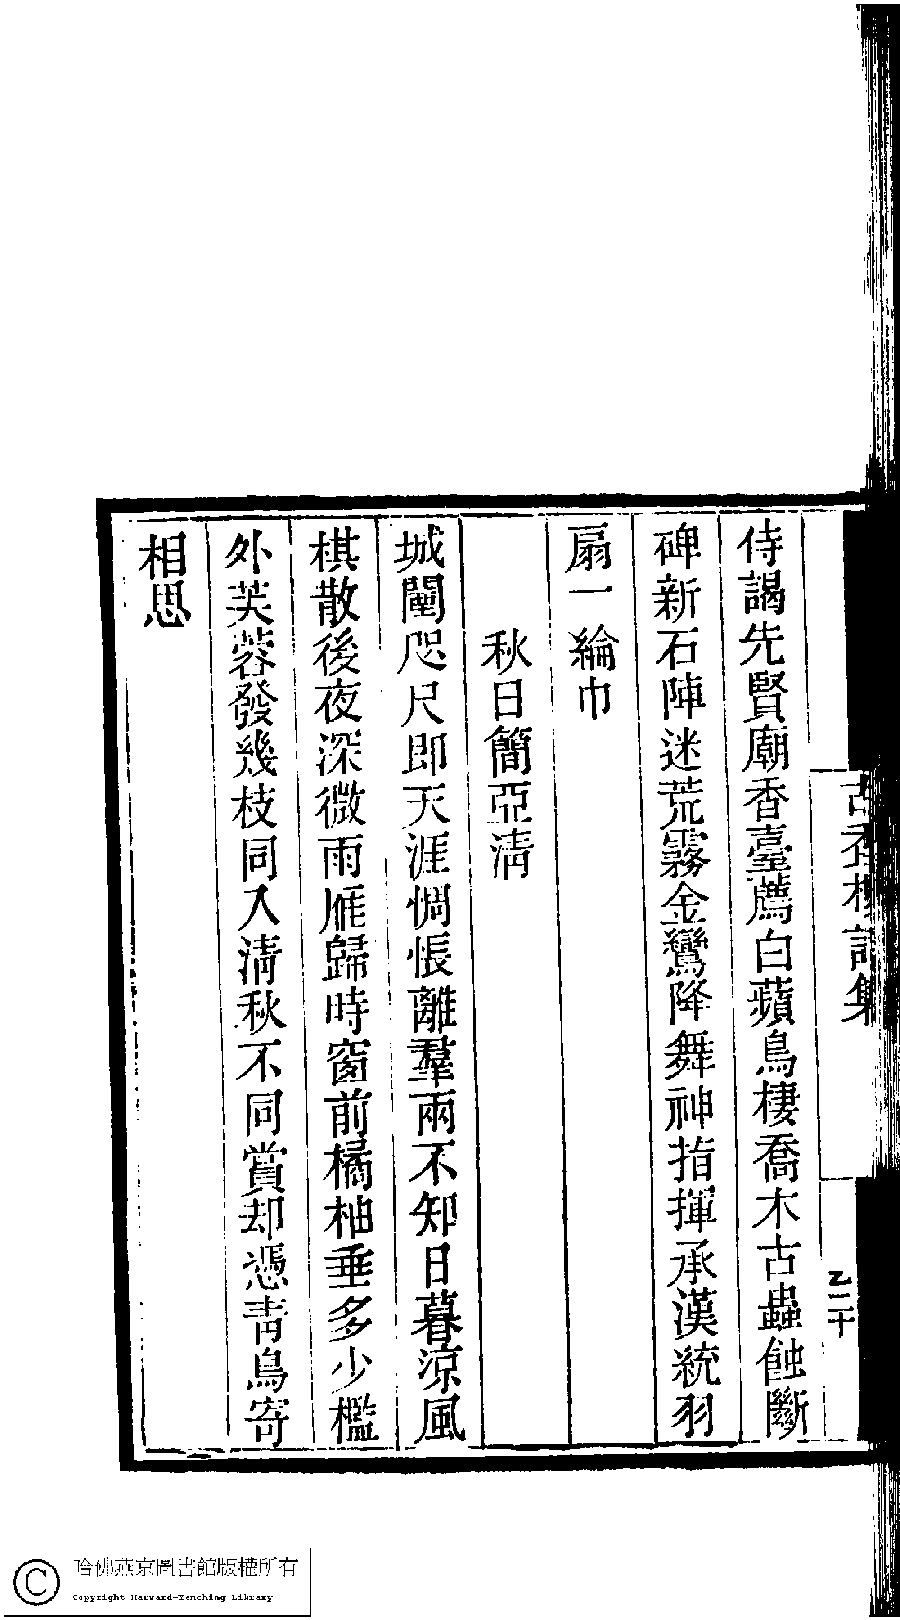 古香樓詩集
乙二十
侍謁先賢廟香臺薦白蘋鳥棲喬木古蟲蝕斷
碑新石陣迷荒霧金鸞降舞神指揮承漢統羽
扇一綸巾
秋日簡亞清
城闉咫尺即天涯惆悵離羣兩不知日暮涼風
棋散後夜深微雨雁歸時窗前橘柚垂多少檻
外芙蓉發幾枝同入清秋不同賞却憑青鳥寄
相思
哈佛燕京圖書館版權所有
Copyright Harvard-Yenching Library